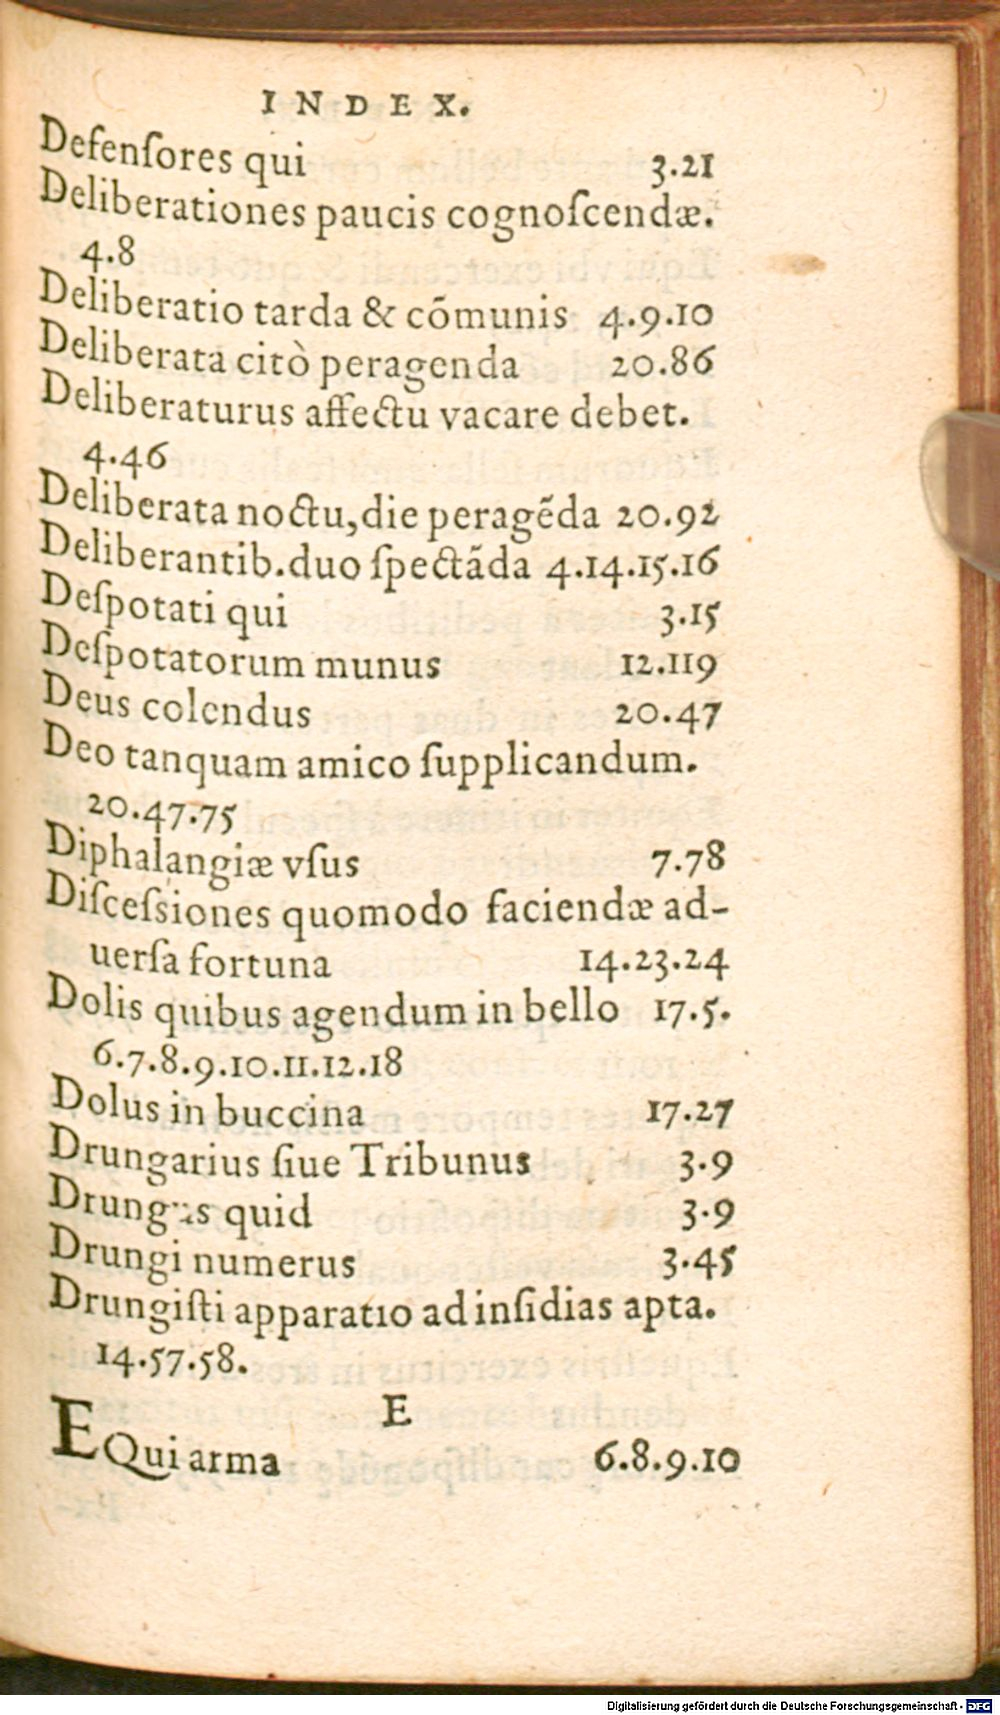 INDEX.
Defenſores qui 3.21
Deliberationes paucis cognoſcendæ.
4.8
Deliberatio tarda & cõmunis 4.9.10
Deliberata citò peragenda 20.86
Deliberaturus affectu vacare debet.
4.46
Deliberata noctu,die peragẽda 20.92
Deliberantib.duo ſpectãda 4.14.15.16
Deſpotati qui 3.15
Deſpotatorum munus 12.119
Deus colendus 20.47
Deo tanquam amico ſupplicandum.
20.47.75
Diphalangiæ vſus 7.78
Diſceſsiones quomodo faciendæ ad-
uerſa fortuna 14.23.24
Dolis quibus agendum in bello 17.5.
6.7.8.9.10.11.12.18
Dolus in buccina 17.27
Drungarius ſiue Tribunus 3.9
Drungus quid 3.9
Drungi numerus 3.45
Drungiſti apparatio ad inſidias apta.
14.57.58.
E
EQui arma 6.8.9.10
Digitalisierung gefördert durch die Deutsche Forschungsgemeinschaft - DFG